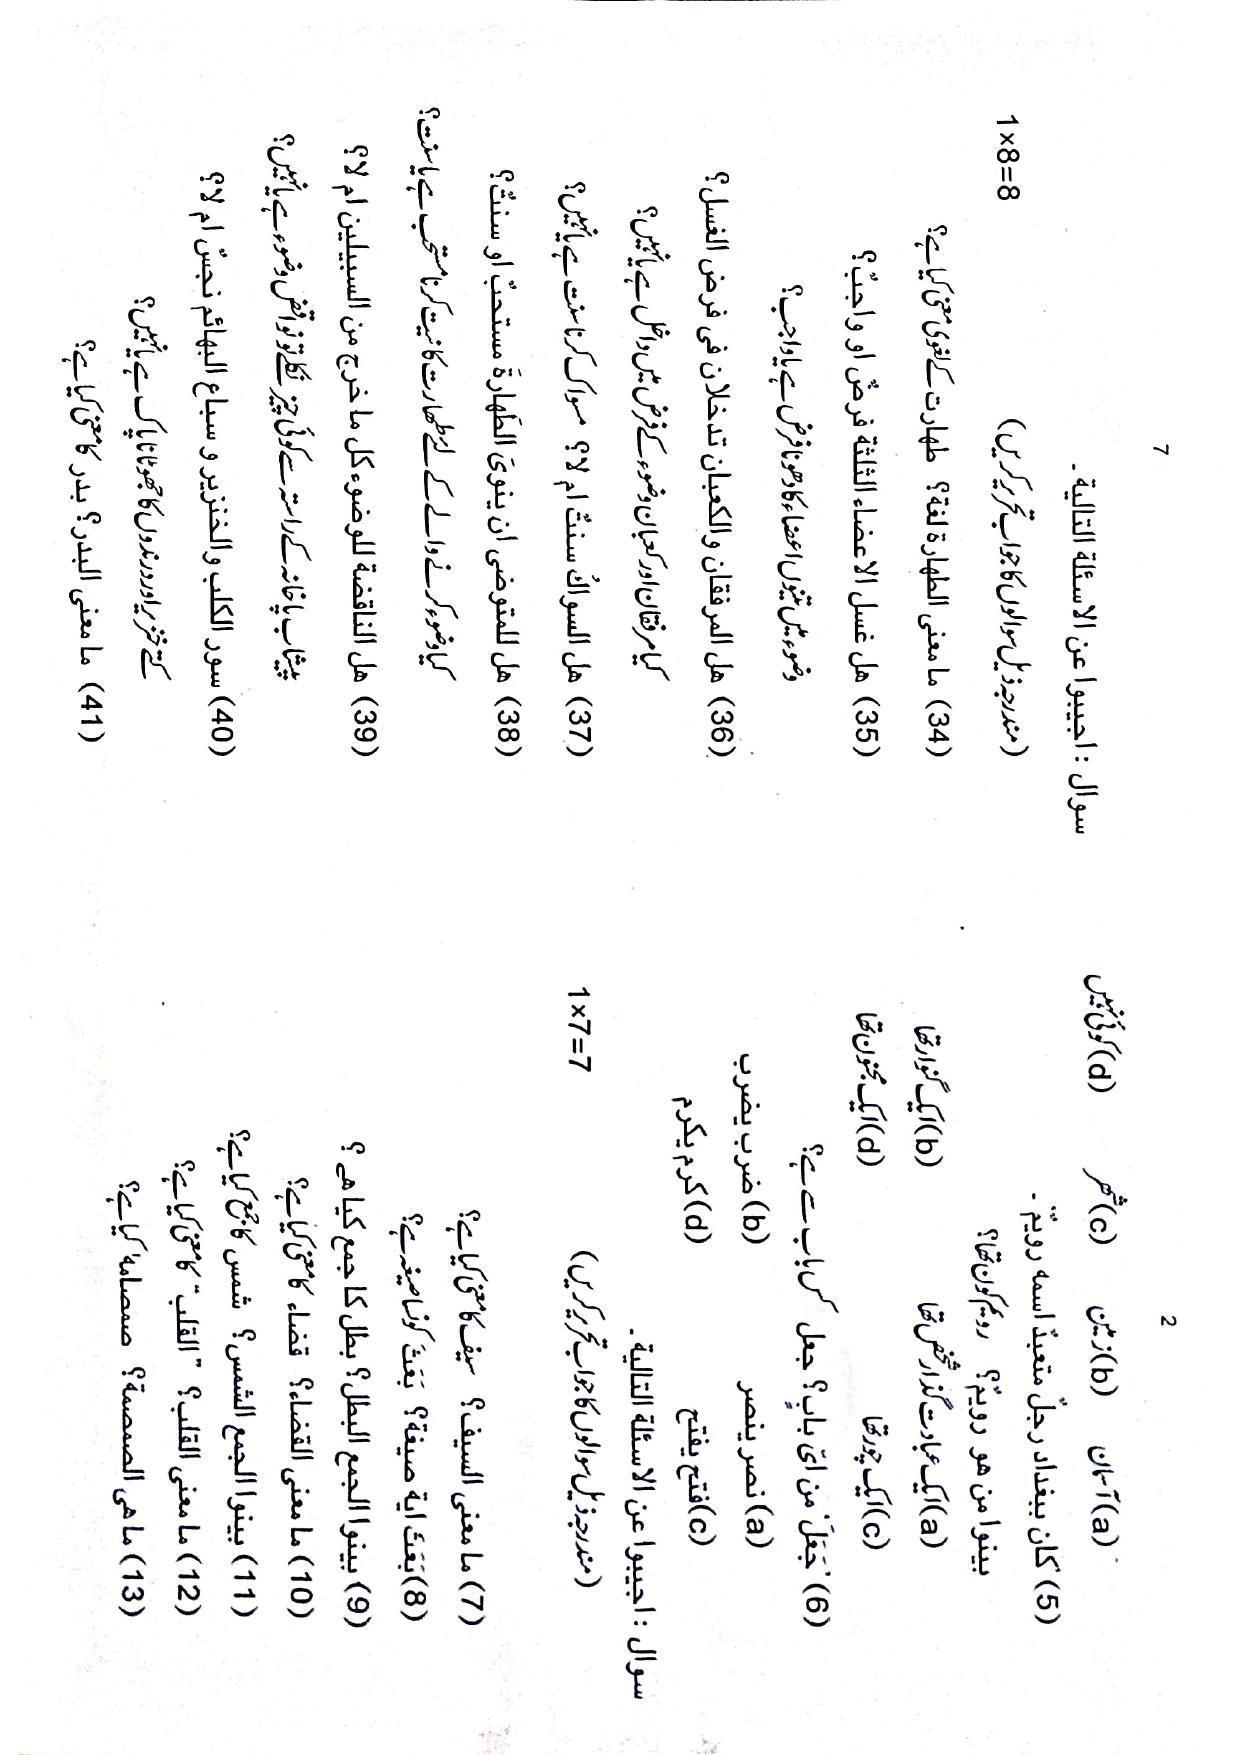 2
(a) آسمان (b) زمین (c) شھر (d) کوئی نہیں
(5) کان ببغداد رجلٌ متعبدٌ اسمه رویمٌ ۔
بینوا من هو رویمٌ؟ رویم کون تھا؟
(a) ایک عبادت گذار شخص تھا (b) ایک گنوار تھا
(c) ایک چور تھا (d) ایک مجنون تھا
(6) 'جَعَلَ' من ایّ بابٍ؟ جعل کس باب سے ہے؟
(a) نصر ینصر (b) ضرب یضرب
(c) فتح یفتح (d) کرم یکرم
سوال : اجیبوا عن الاسئلة التالیة۔
(مندرجہ ذیل سوالوں کا جواب تحریر کریں) 1×7=7
(7) ما معنی السیف؟ سیف کا معنی کیا ہے؟
(8) بَعَثَ ایة صیغة؟ بَعَثَ کونسا صیغہ ہے؟
(9) بینوا الجمع البطل؟ بطل کا جمع کیا ھے ؟
(10) ما معنی القضاء؟ قضاء کا معنی کیا ہے؟
(11) بینوا الجمع الشمس؟ شمس کا جمع کیا ہے؟
(12) ما معنی القلب؟ "القلب" کا معنی کیا ہے؟
(13) ما هی الصمصمة؟ صمصامہ کیا ہے؟
7
سوال : اجیبوا عن الاسئلة التالیة۔
(مندرجہ ذیل سوالوں کا جواب تحریر کریں) 1×8=8
(34) ما معنی الطهارة لغة؟ طہارت کے لغوی معنی کیا ہے؟
(35) هل غسل الاعضاء الثلثة فرضٌ او واجبٌ؟
وضوء میں تینوں اعضاء کا دھونا فرض ہے یا واجب؟
(36) هل المرفقان والکعبان تدخلان فی فرض الغسل؟
کیا مرفقان اور کعبان وضوء کے فرض میں داخل ہے یا نہیں؟
(37) هل السواکُ سنتٌ ام لا؟ مسواک کرنا سنت ہے یا نہیں؟
(38) هل للمتوضی ان ینویَ الطَهارةَ مستحبٌ او سنتٌ؟
کیا وضوء کرنے والے کے لئے طہارت کا نیت کرنا مستحب ہے یا سنت؟
(39) هل الناقضة للوضوء کل ما خرج من السبیلین ام لا؟
پیشاب پاخانہ کے راستہ سے کوئی چیز نکلے تو نواقض وضوء ہے یا نہیں؟
(40) سور الکلب والخنزیر و سباع البهائم نجسٌ ام لا؟
کتے خنزیر اور درندوں کا جھوٹا ناپاک ہے یا نہیں؟
(41) ما معنی البدر؟ بدر کا معنی کیا ہے؟